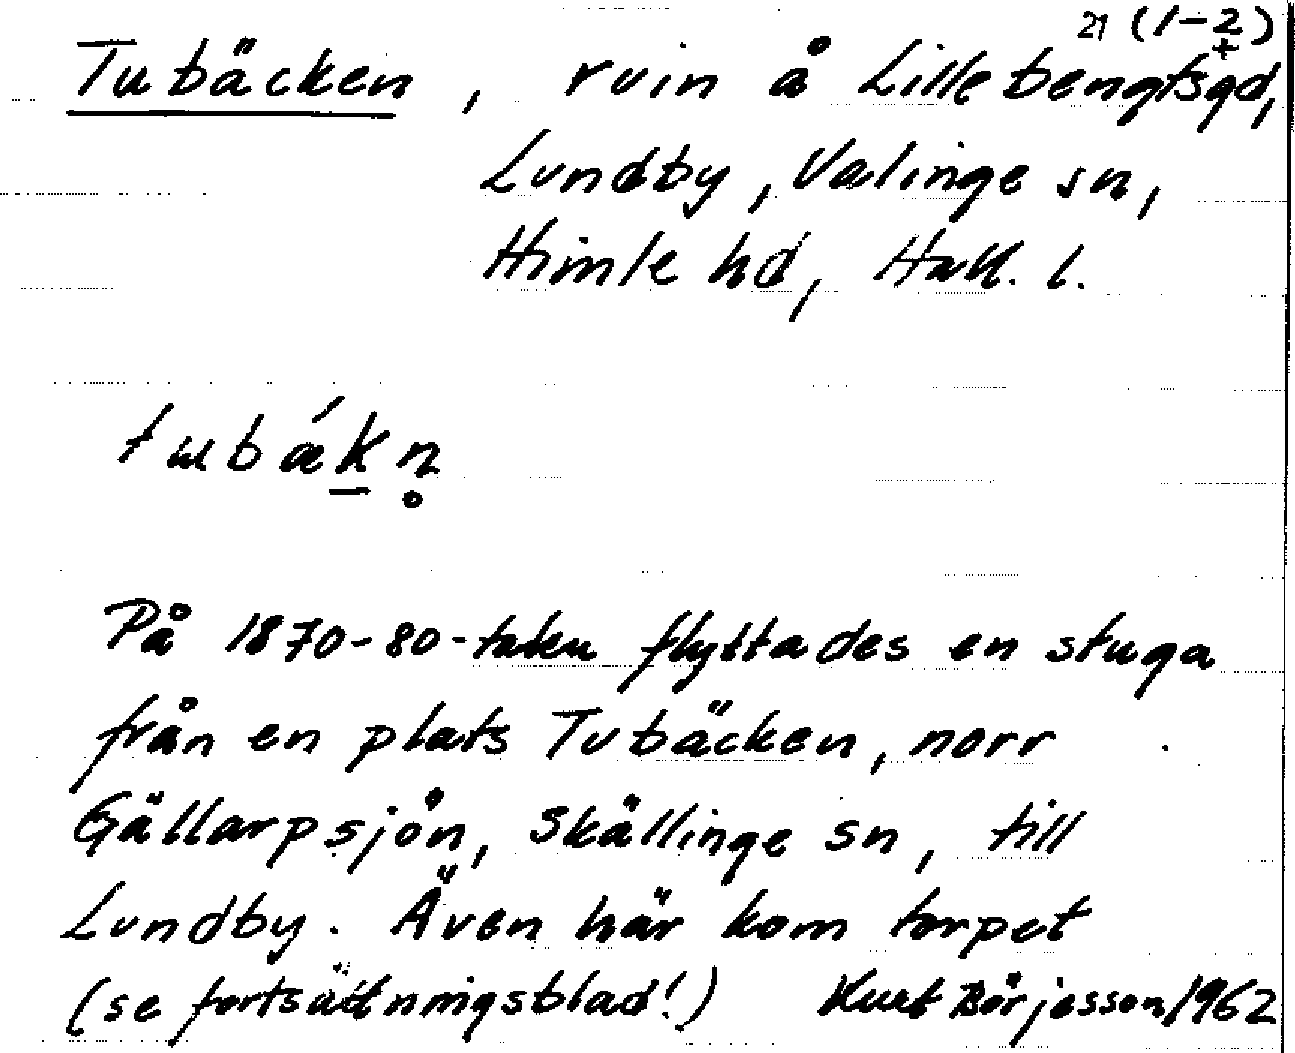 21 (1-2)
+
Tubäcken, ruin å Lillebengtsgd,
Lundby, Valinge sn,
Himle hd, Hall. l.
tubák̲n̥
På 1870-80-talen flyttades en stuga
från en plats Tubäcken, norr
Gällarpsjön, Skällinge sn, till
Lundby. Även här kom torpet
(se fortsättningsblad!) Kurt Börjesson/1962